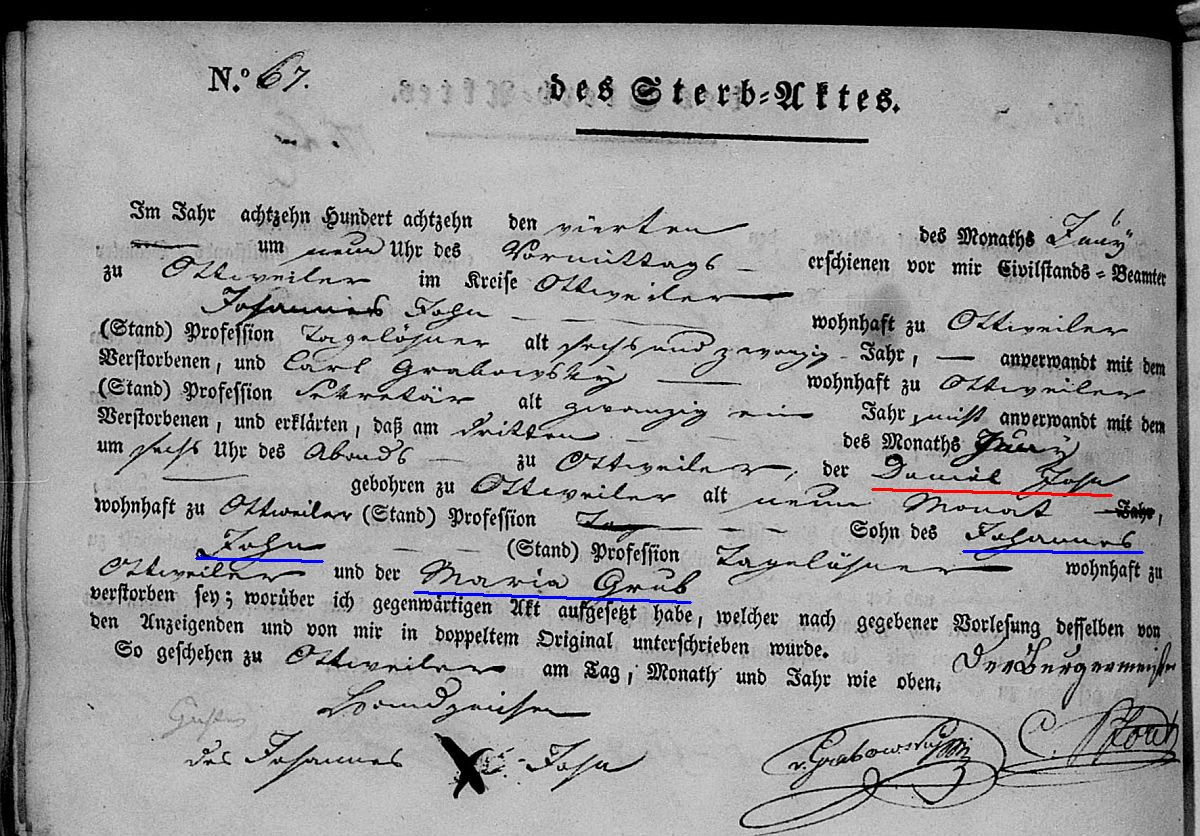 N.º 67. des Sterb=Aktes.
Im Jahr achtzehn Hundert achtzehn den vierten des Monaths Juny
um neun Uhr des Vormittags erschienen vor mir Civilstands=Beamter
zu Ottweiler im Kreise Ottweiler
Johannes John wohnhaft zu Ottweiler
(Stand) Profession Tagelöhner alt sechs und zwanzig Jahr, anverwandt mit dem
Verstorbenen, und Carl Grabowsky wohnhaft zu Ottweiler
(Stand) Profession Sekretär alt zwanzig ein Jahr, nicht anverwandt mit dem
Verstorbenen, und erklärten, daß am dritten des Monaths Juny
um sechs Uhr des Abends zu Ottweiler, der Daniel John
gebohren zu Ottweiler alt neun Monat Jahr,
wohnhaft zu Ottweiler (Stand) Profession Sohn des Johannes
John (Stand) Profession Tagelöhner wohnhaft zu
Ottweiler und der Maria Grub
verstorben sey; worüber ich gegenwärtigen Akt aufgesetzt habe, welcher nach gegebener Vorlesung desselben von
den Anzeigenden und von mir in doppeltem Original unterschrieben wurde.
So geschehen zu Ottweiler am Tag, Monath und Jahr wie oben. Der Bürgermeister
Handzeichen
des Johannes X John
v. Grabowsky C.